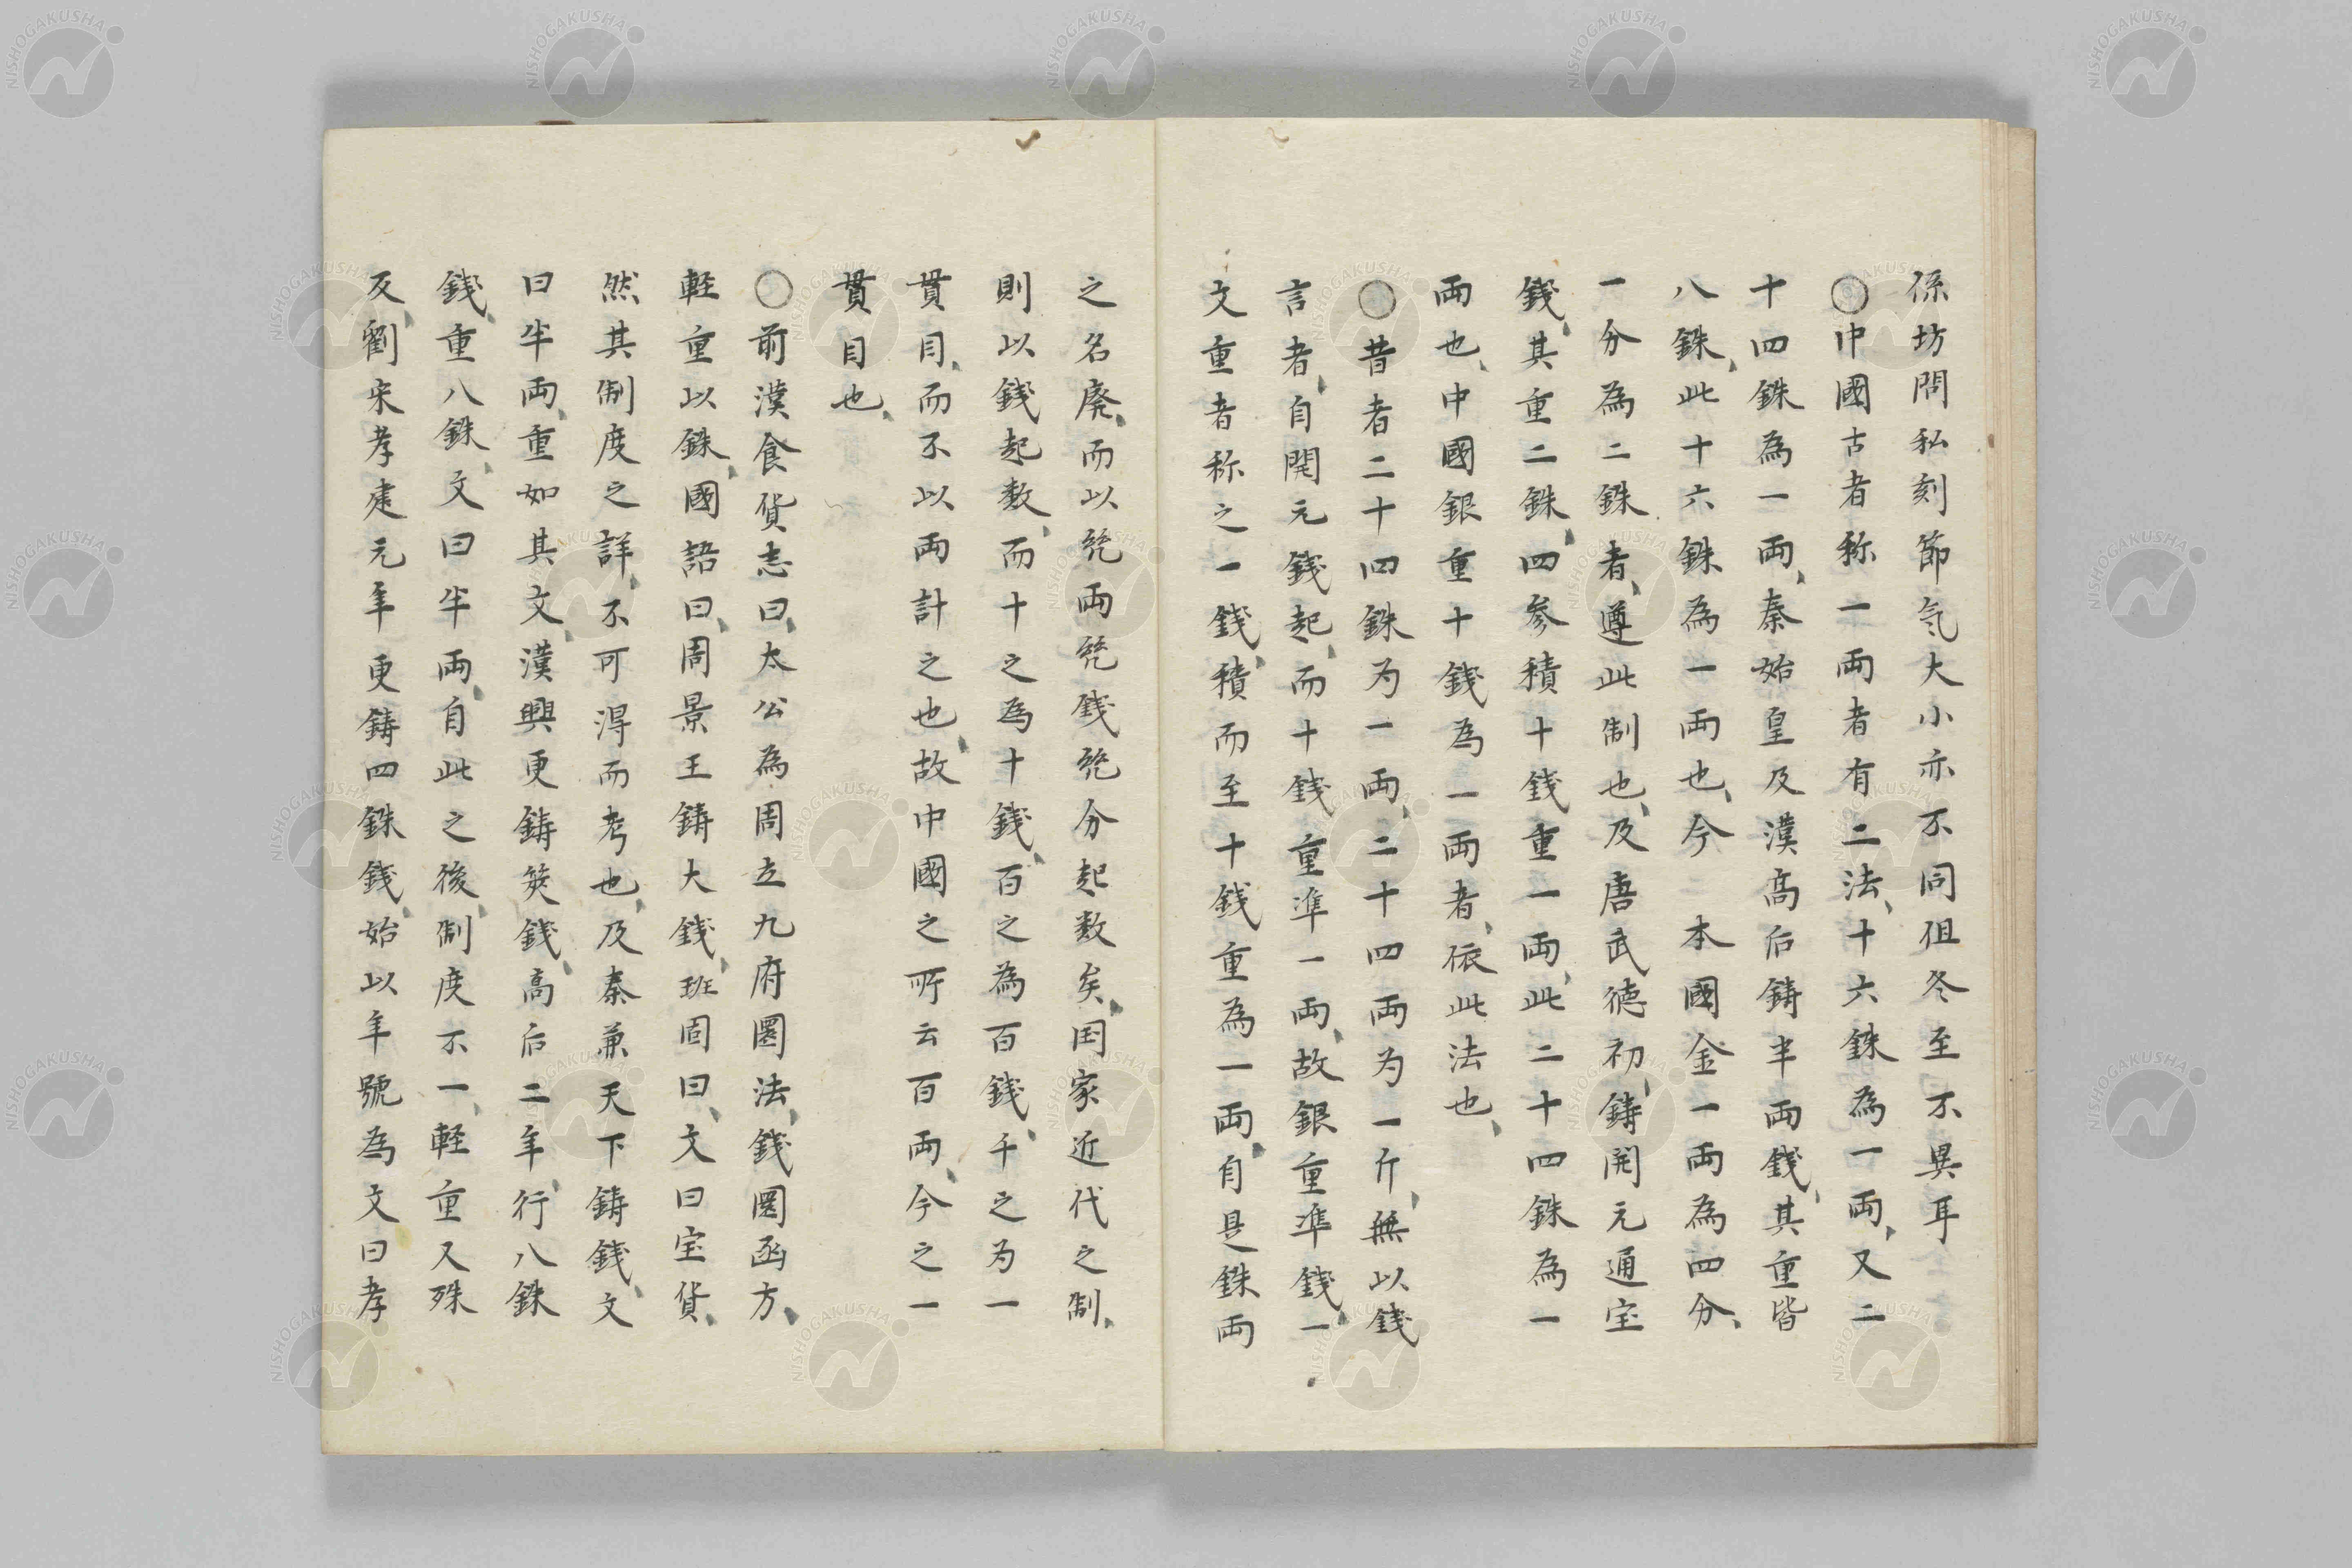 係坊間私刻節気大小亦不同但冬至不異耳
〇中國古者称一両者有二法、十六銖為一両、又二
十四銖為一両、秦始皇及漢高后鋳半両銭、其重皆
八銖、此十六銖為一両也、今 本國金一両為四分、
一分為二銖者、遵此制也、及唐武徳初、鋳開元通宝
銭、其重二銖、四参積十銭重一両、此二十四銖為一
両也、中國銀重十銭為一両者、依此法也、
〇昔者二十四銖为一両、二十四両为一斤、無以銭
言者、自開元銭起、而十銭重準一両、故銀重準銭、一
文重者称之一銭、積而至十銭重為一両、自是銖両
之名廃、而以兊両兊銭兊分起数矣、国家近代之制、
則以銭起数、而十之為十銭、百之為百銭、千之为一
貫目、而不以両計之也、故中國之所云百両、今之一
貫目也、
〇前漢食貨志曰、太公為周立九府圜法、銭圜函方、
軽重以銖、國語曰、周景王鋳大銭、班固曰、文曰宝貨、
然其制度之詳、不可得而考也、及秦兼天下鋳銭、文
曰半両、重如其文、漢興更鋳莢銭、高后二年、行八銖
銭、重八銖、文曰半両、自此之後、制度不一、軽重又殊
及、劉宋孝建元年更鋳四銖銭、始以年號為文曰孝
NISHOGAKUSHA